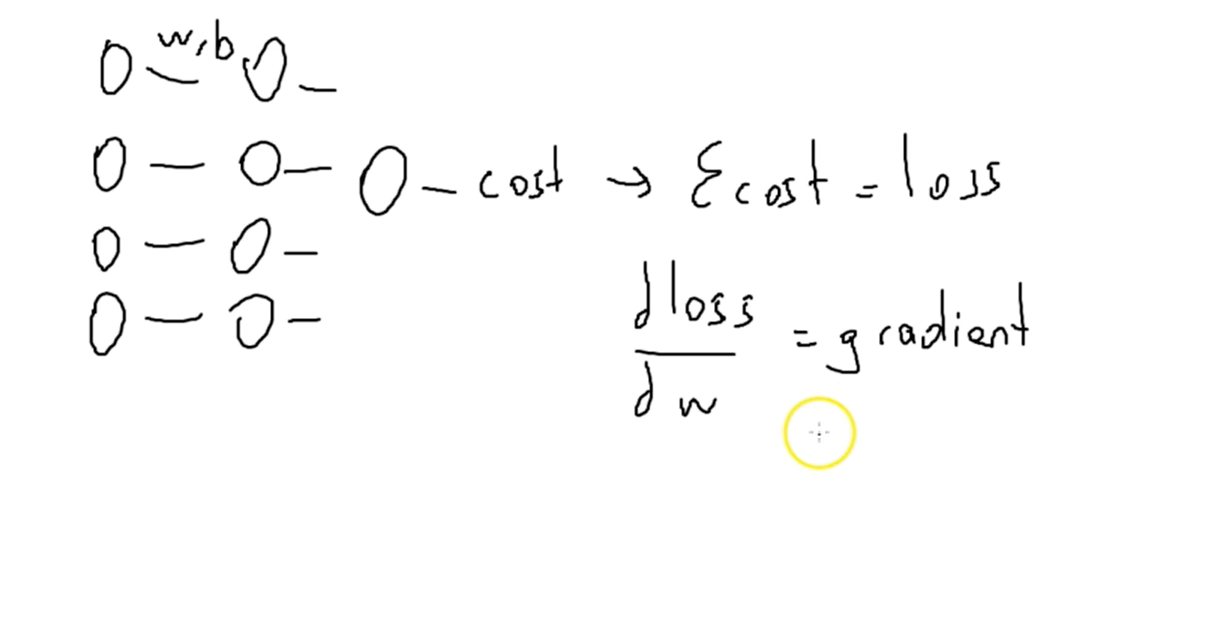 w,b
cost → Σcost = loss
dloss
dw
= gradient